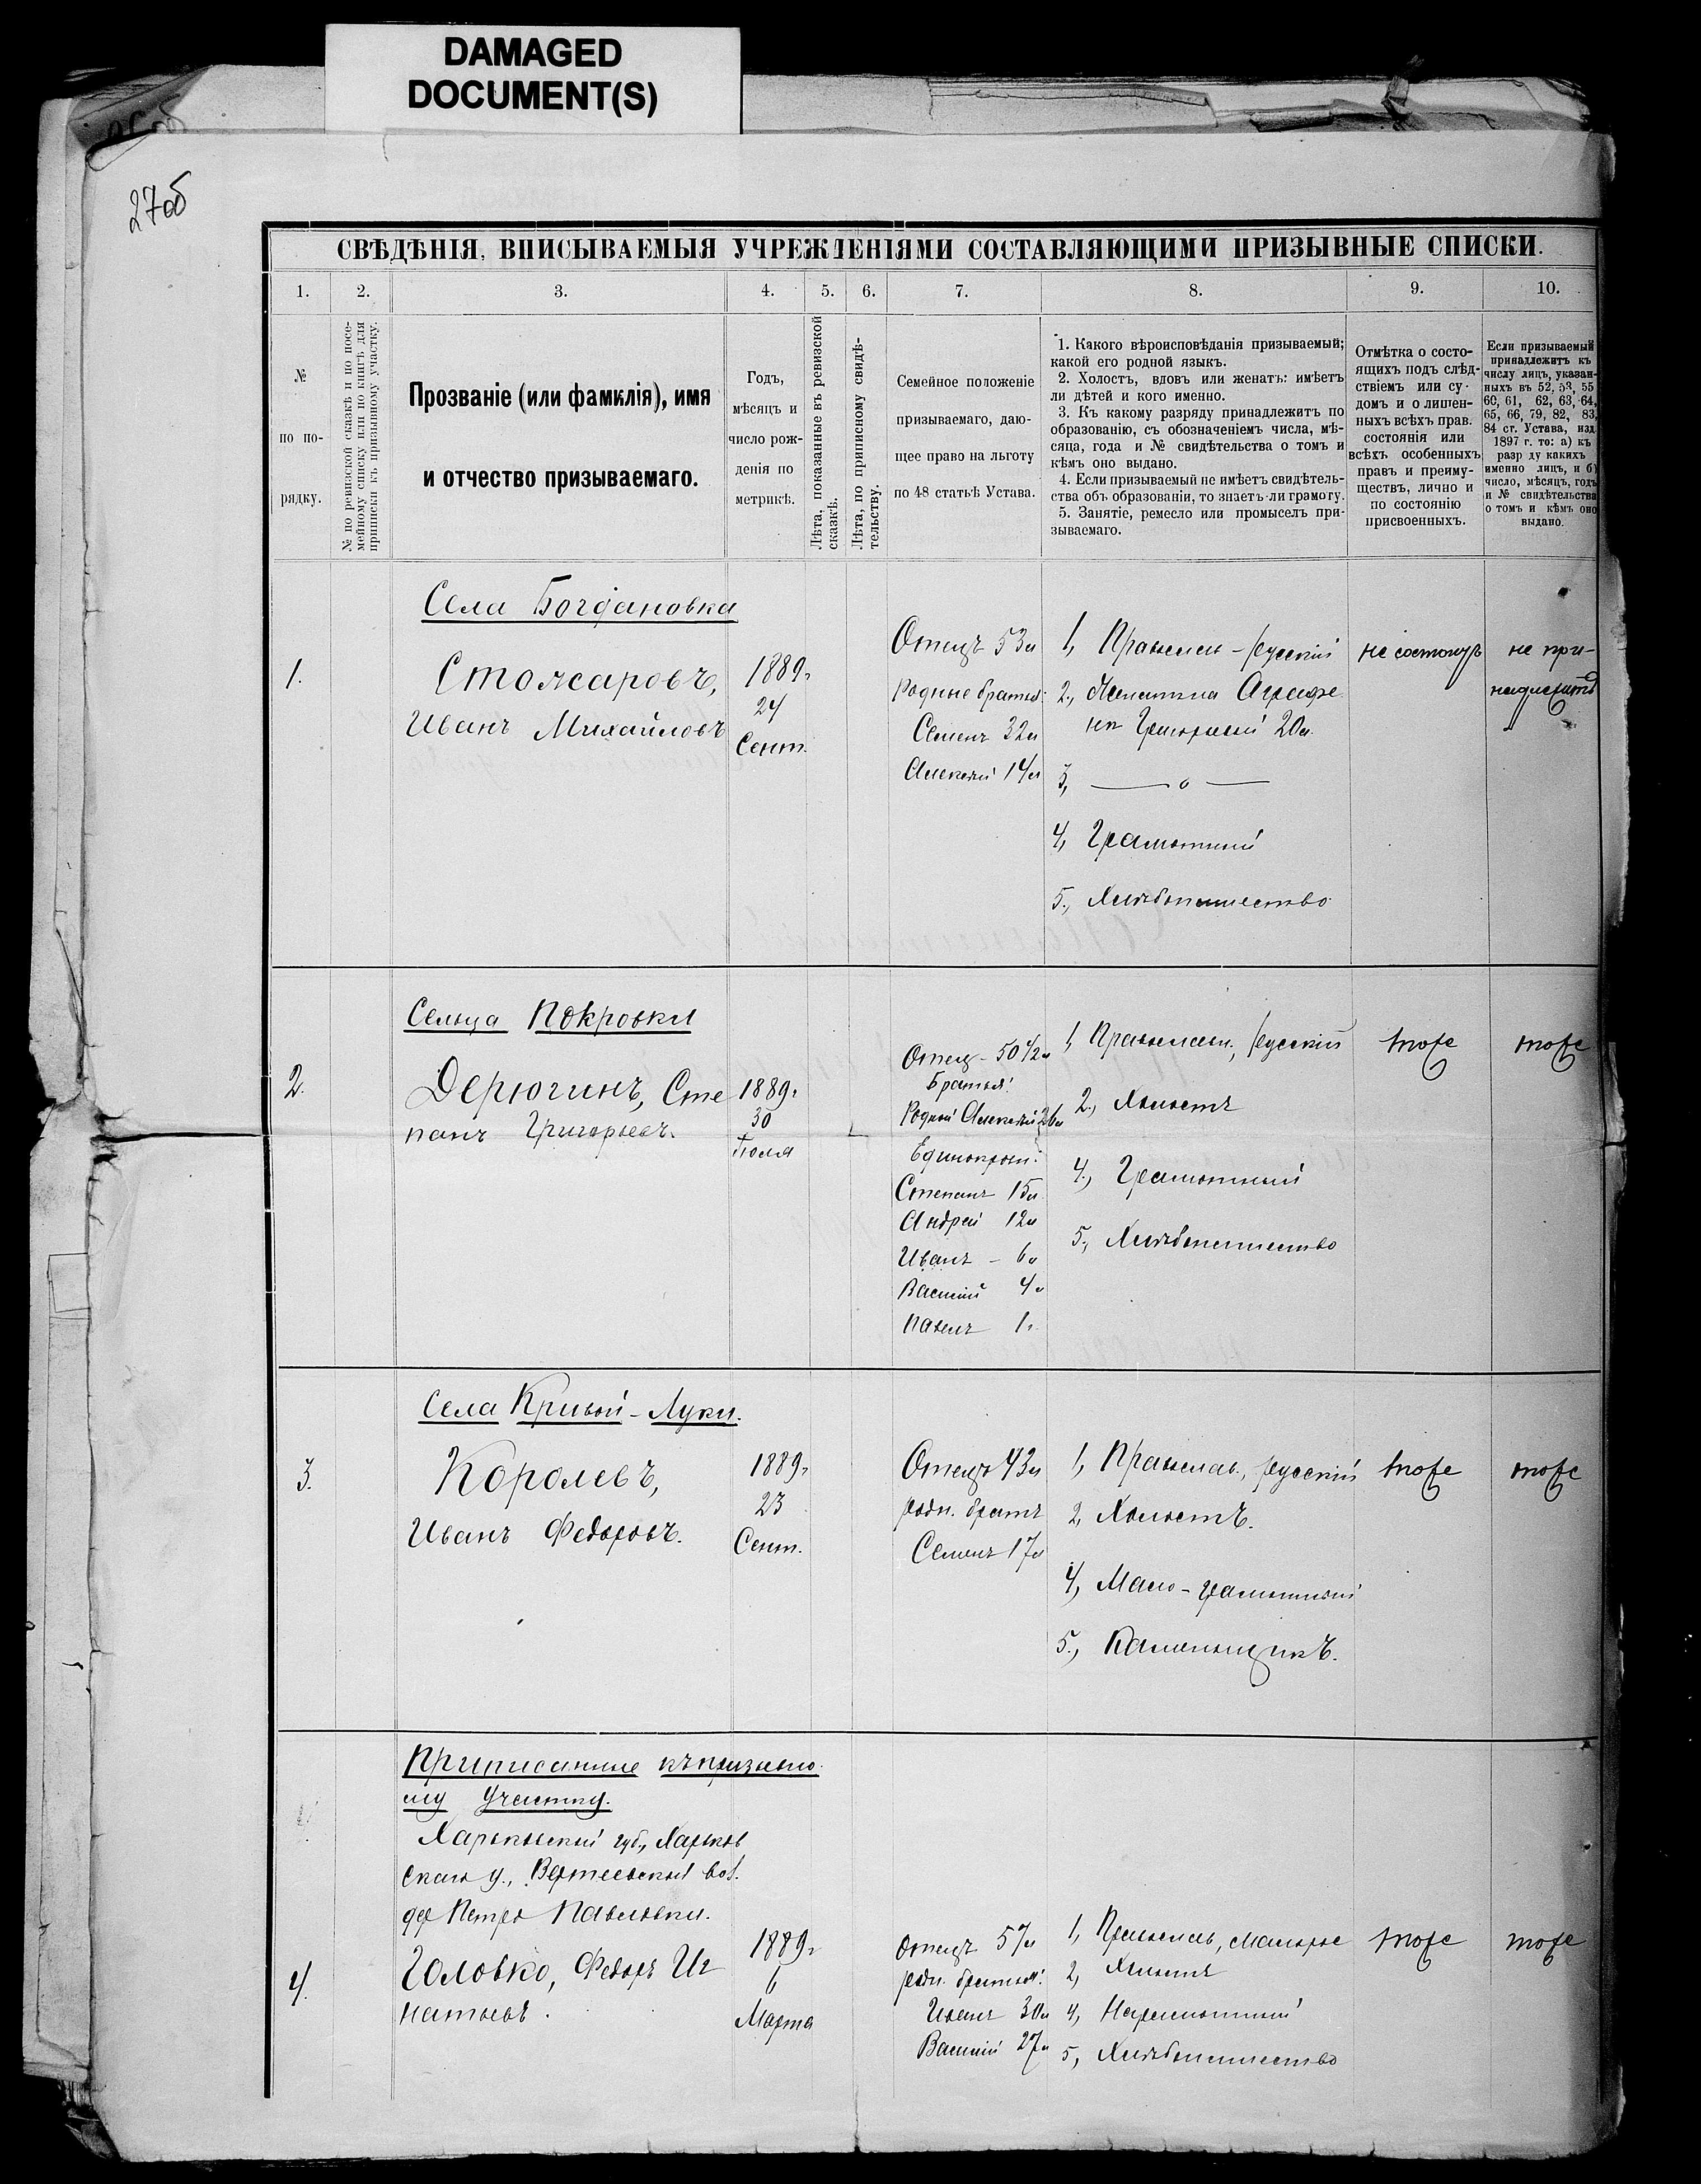 DAMAGED
DOCUMENT(S)
27об
СВѢДѢНІЯ, ВПИСЫВАЕМЫЯ УЧРЕЖДЕНІЯМИ СОСТАВЛЯЮЩИМИ ПРИЗЫВНЫЕ СПИСКИ.
1.
2.
3.
4.
5.
6.
7.
8.
9.
10.
№
по по-
рядку.
№ по ревизской сказкѣ и по посе-
мейному списку или по книгѣ для
приписки къ призывному участку.
Прозваніе (или фамилія), имя
и отчество призываемаго.
Годъ,
мѣсяцъ и
число рож-
денія по
метрикѣ.
Лѣта, показанные въ ревизской
сказкѣ.
Лѣта, по приписному свидѣ-
тельству.
Семейное положеніе
призываемаго, даю-
щее право на льготу
по 48 статьѣ Устава.
1. Какого вѣроисповѣданія призываемый;
какой его родной языкъ.
2. Холостъ, вдовъ или женатъ: имѣетъ
ли дѣтей и кого именно.
3. Къ какому разряду принадлежитъ по
образованію, съ обозначеніемъ числа, мѣ-
сяца, года и № свидѣтельства о томъ и
кѣмъ оно выдано.
4. Если призываемый не имѣетъ свидѣтель-
ства объ образованіи, то знаетъ-ли грамоту.
5. Занятіе, ремесло или промыселъ при-
зываемаго.
Отмѣтка о состо-
ящихъ подъ слѣд-
ствіемъ или су-
домъ и о лишен-
ныхъ всѣхъ прав.
состоянія или
всѣхъ особенныхъ
правъ и преиму-
ществъ, лично и
по состоянію
присвоенныхъ.
Если призываемый
принадлежитъ къ
числу лицъ, указан-
ныхъ въ 52, 53, 55
60, 61, 62, 63, 64,
65, 66, 79, 82, 83,
84 ст. Устава, изд.
1897 г. то: а) къ
разр ду какихъ
именно лицъ, и б)
число, мѣсяцъ, годъ
и № свидѣтельства
о томъ и кѣмъ оно
выдано.
Села Богдановка
1.
Столяровъ,
Иванъ Михайловъ
1889г
24
Сент.
Отецъ 53л
Родные братья:
Семенъ 32л
Алексѣй 14л
1, Православ - русскій
2., Женатъ на Аграфе
нѣ Григорьевой 20л.
3, — о —
4, Грамотный
5., Хлѣбопашество
не состоитъ
не при-
надлежитъ
Сельца Покровки
2.
Дерюгинъ, Сте
панъ Григорьевъ.
1889г
30
Іюля
Отецъ - 50 1/2л
Братья:
Родной Алексѣй 26л
Единокров:
Степанъ 15л
Андрей 12л
Иванъ - 6л
Василій 4л
Павелъ 1г.
1, Православн., русскій
2., Холостъ
4., Грамотный
5., Хлѣбопашество
тоже
тоже
Села Кривой-Луки.
3.
Королевъ,
Иванъ Федоровъ.
1889г
23
Сент.
Отецъ 43л
родн. братъ
Семенъ 17л
1, Православ., русскій
2, Холостъ.
4, Мало-грамотный
5., Каменьщикъ.
тоже
тоже
Приписанные къ призывно
му участку.
Харьковской губ., Харьков
скаго у.,
вол.
дер Петро Павловки.
4.
Головко, Федоръ Иг
натьевъ.
1889г
6
Марта
Отецъ 57л
родн. братья:
Иванъ 30л
Василій 27л
1, Православ, малорос
2, Холостъ
4, Неграмотный
5, Хлѣбопашество
тоже
тоже